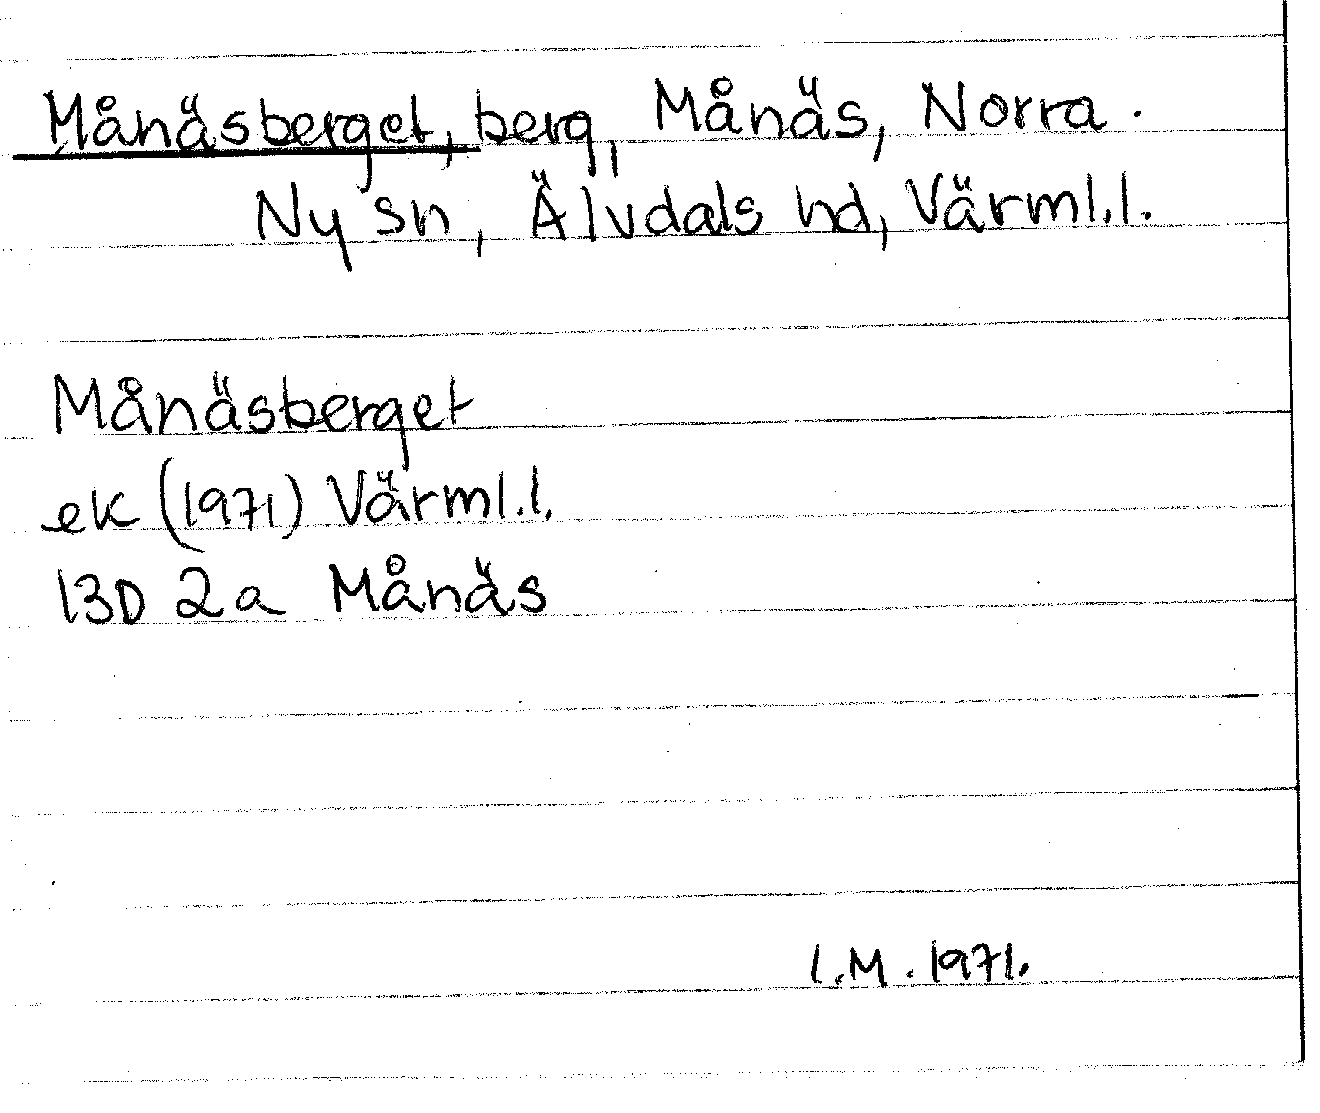 Månäsberget, berg, Månäs, Norra.
Ny sn, Älvdals hd, Värml.l.
Månäsberget
ek (1971) Värml.l.
13D 2a Månäs
I.M. 1971.